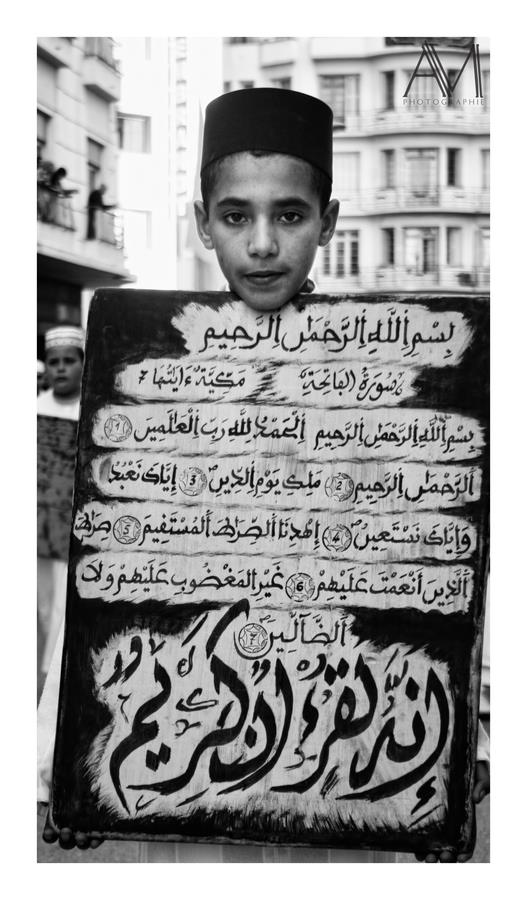 AM
PHOTOGRAPHIE
بِسْمِ اللَّهِ الرَّحْمَٰنِ الرَّحِيمِ
سُورَةُ الفَاتِحَة مَكِيَّة ءَايَتُهَا 7
بِسْمِ اللَّهِ الرَّحْمَٰنِ الرَّحِيمِ اَلْحَمْدُ لِلهِ رَبِّ الْعَٰلَمِينَ 1
اَلرَّحْمَٰنِ الرَّحِيمِ 2 مَلِكِ يَوْمِ الدِّينِ 3 إِيَّاكَ نَعْبُدُ
وَإِيَّاكَ نَسْتَعِينُ 4 إِهْدِنَا اَلصِّرَاطَ اَلْمُسْتَقِيمَ 5 صِرَاطَ
اَلَّذِينَ أَنْعَمْتَ عَلَيْهِمْ 6 غَيْرِ الْمَغْضُوبِ عَلَيْهِمْ وَلَا
اَلضَّآلِّينَ 7
إِنَّهُ لَقُرْءَانٌ كَرِيمٌ